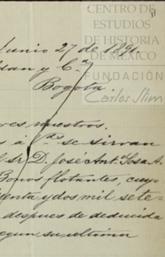 CENTRO DE
ESTUDIOS
DE HISTORIA
DE MÉXICO
FUNDACIÓN
Carlos Slim
Junio 27 de 1891.
y Cª
Bogotá
nuestros.
se sirvan
Sr. D. José Ant. Sosa A.
Bonos flotantes, cuyo
y dos mil sete-
despues de deducida
segun su ultima